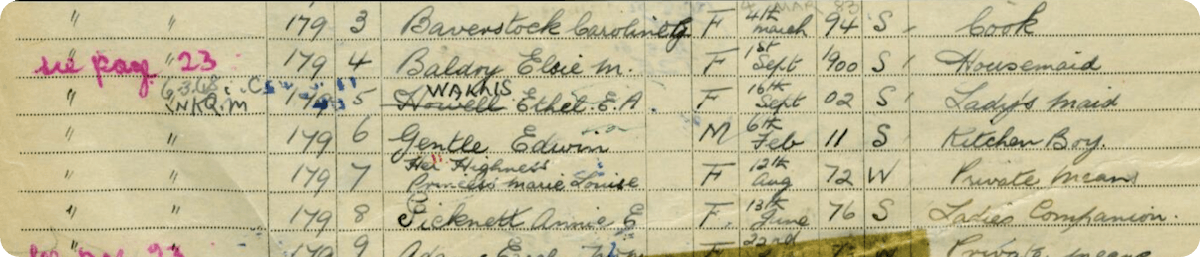 4 MAR 83
" " 179 3 Baverstock Caroline F 4th March 94 S Cook
see pag 23 179 4 Baldry Elsie M. F 1st Sept 900 S Housemaid
6.3.68 C WAKLIS
" NKQ.M 179 5 Howell Ethel E.A. F 16th Sept 02 S Lady's Maid
" " 179 6 Gentle Edwin M 6th Feb 11 S Kitchen Boy.
" " 179 7 Her Highness Princess Marie Louise F 12th Aug 72 W Private Means
" " 179 8 Sicknett Annie E F. 13th June 76 S Ladies Companion.
" " 179 9 F 22nd Private means
23